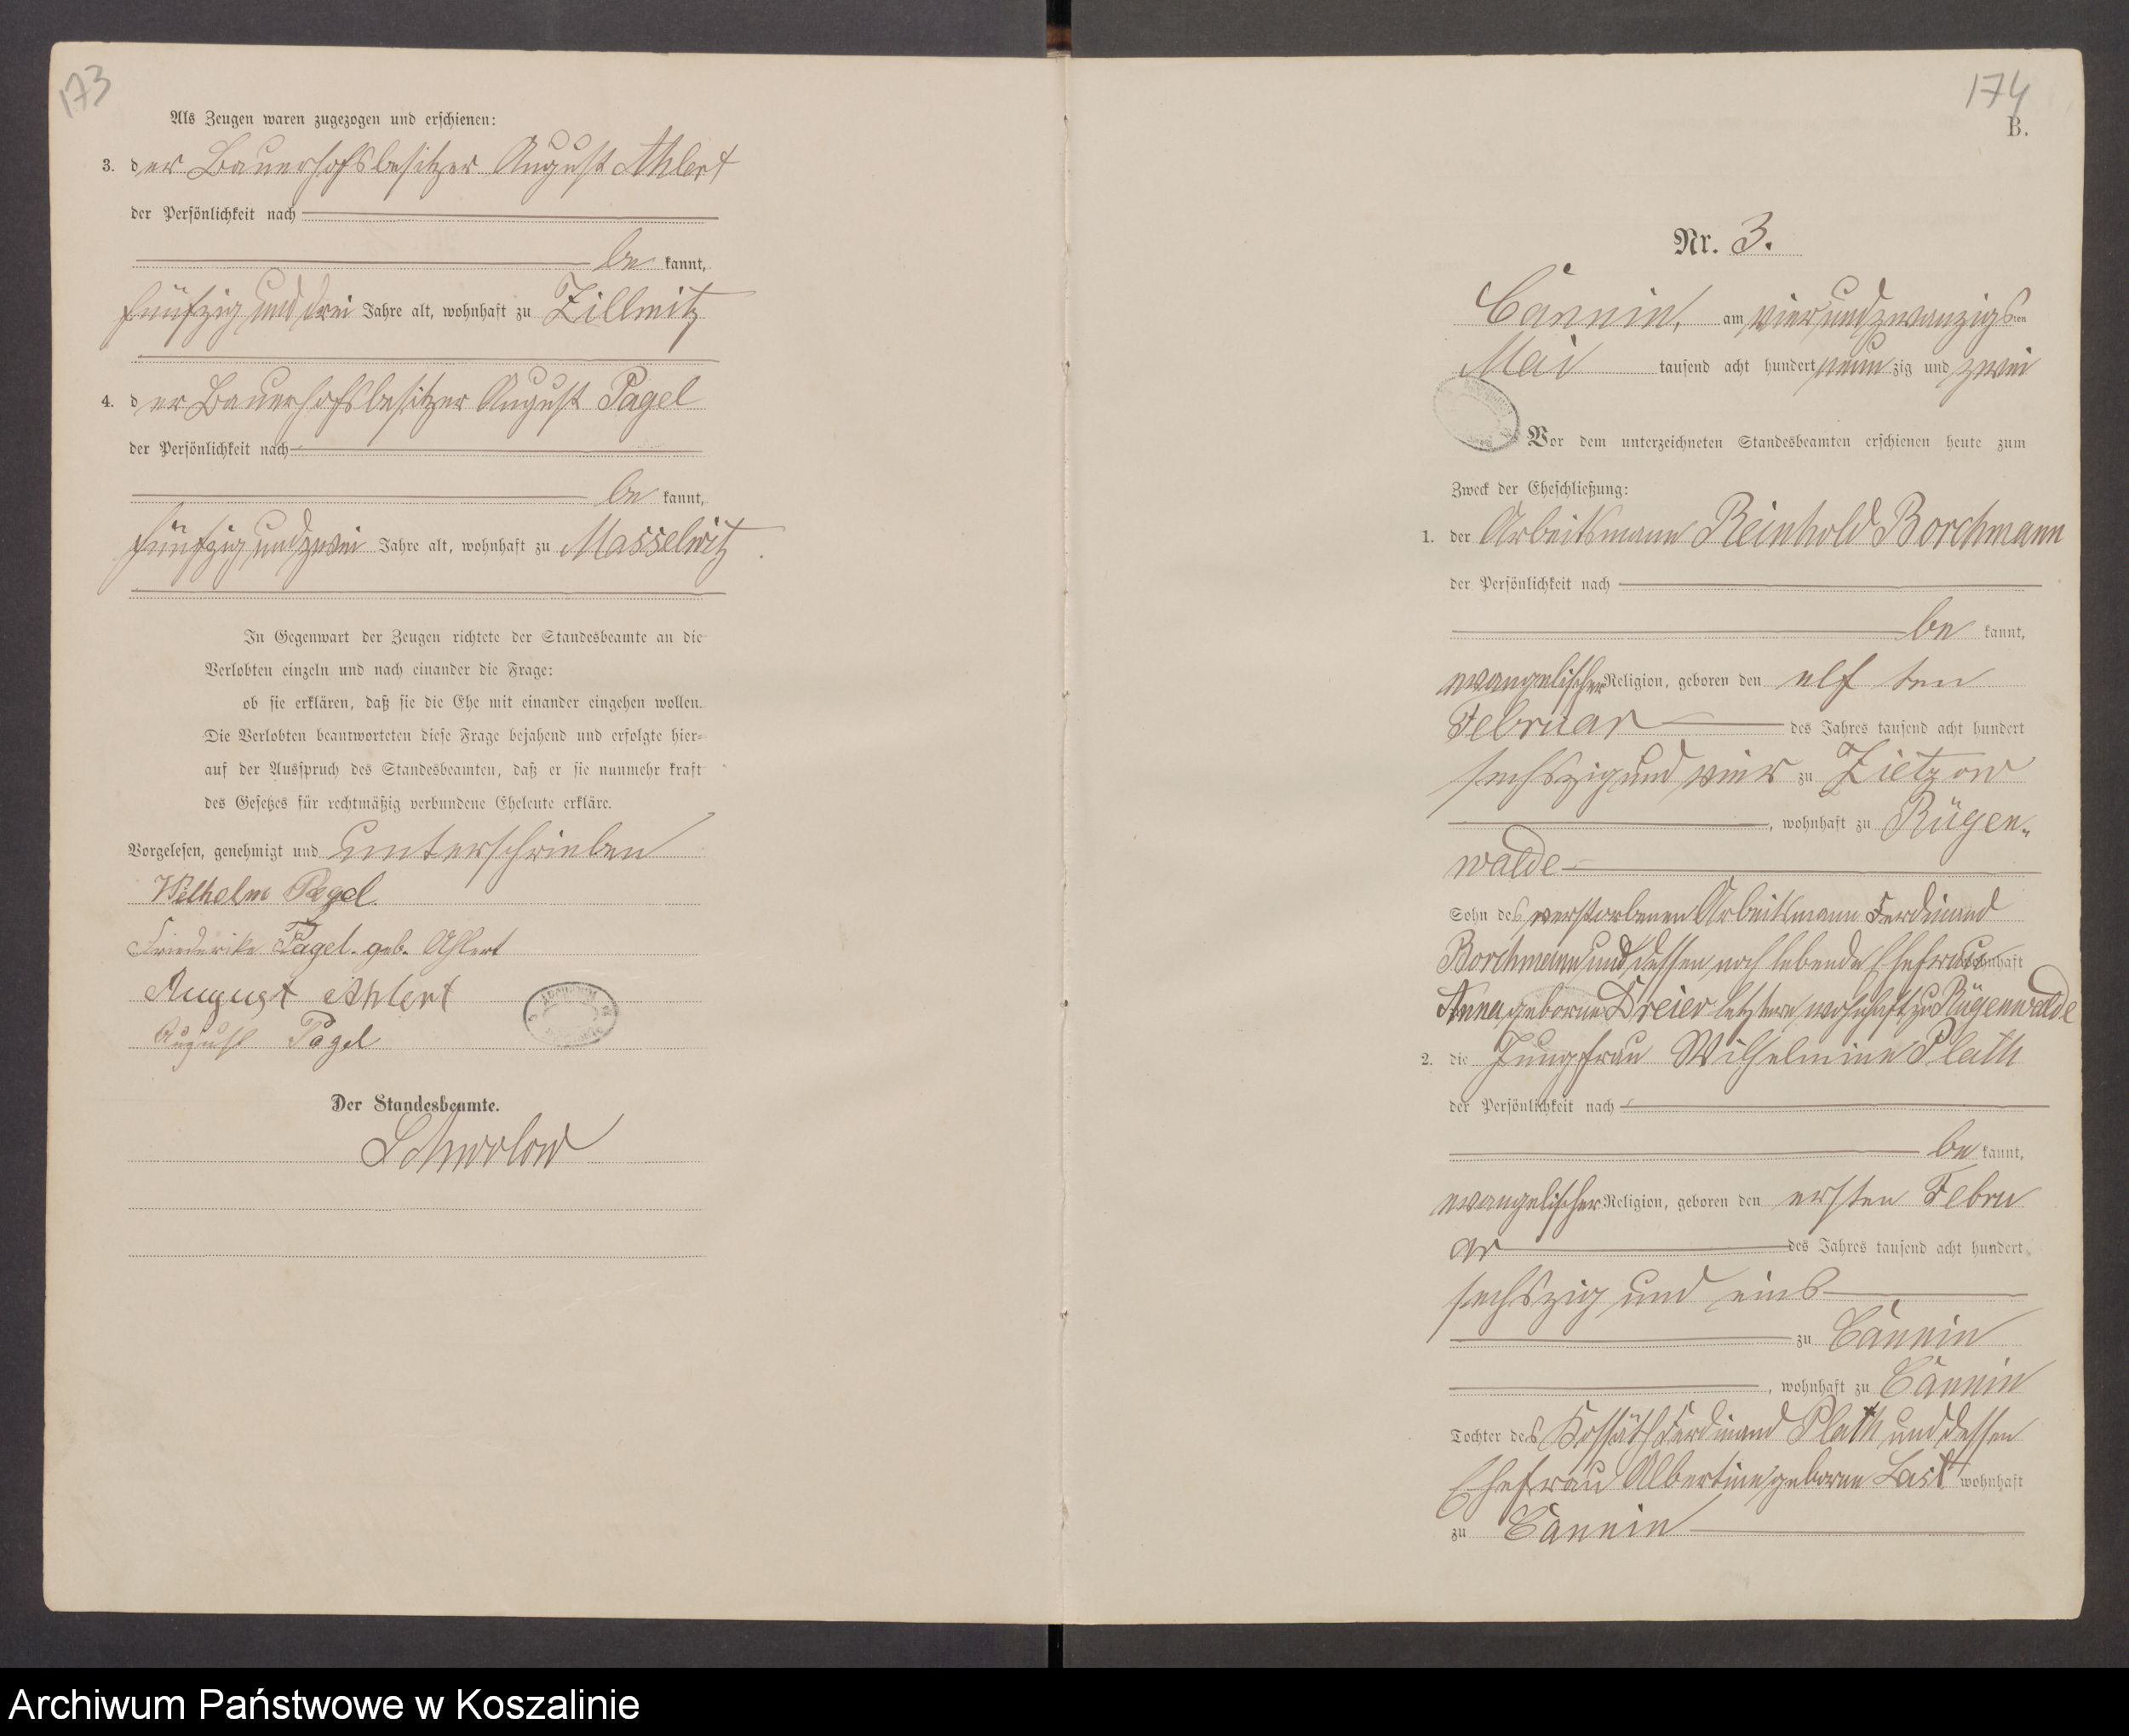 173
Als Zeugen waren zugezogen und erschienen:
3. der Bauerhofsbesitzer August Ahlert
der Persönlichkeit nach
be kannt,
fünfzig und drei Jahre alt, wohnhaft zu Zillmitz
4. der Bauerhofsbesitzer August Pagel
der Persönlichkeit nach
be kannt,
fünfzig und zwei Jahre alt, wohnhaft zu Masselwitz
In Gegenwart der Zeugen richtete der Standesbeamte an die
Verlobten einzeln und nach einander die Frage:
ob sie erklären, daß sie die Ehe mit einander eingehen wollen.
Die Verlobten beantworteten diese Frage bejahend und erfolgte hier-
auf der Ausspruch des Standesbeamten, daß er sie nunmehr kraft
des Gesetzes für rechtmäßig verbundene Eheleute erkläre.
Vorgelesen, genehmigt und unterschrieben
Wilhelm Pagel
Friederike Pagel geb. Ahlert
August Ahlert
August Pagel
Der Standesbeamte.
174
B.
Nr. 3.
Cannin, am vierundzwanzigsten
Mai tausend acht hundert neun zig und zwei
Vor dem unterzeichneten Standesbeamten erschienen heute zum
Zweck der Eheschließung:
1. der Arbeitsmann Reinhold Borchmann
der Persönlichkeit nach
be kannt,
evangelischer Religion, geboren den elf ten
Februar des Jahres tausend acht hundert
sechszig und vier zu Zietzow
, wohnhaft zu Rügen-
walde
Sohn des verstorbenen Arbeitsmann Ferdinand
Borchmann und dessen noch lebende Ehefrau wohnhaft
Anna geborne Dreier letztere wohnhaft zu Rügenwalde
2. die Jungfrau Wilhelmine Plath
der Persönlichkeit nach
be kannt,
evangelischer Religion, geboren den ersten Febru
ar des Jahres tausend acht hundert
sechszig und eins
zu Cannin
, wohnhaft zu Cannin
Tochter des Kossäth Ferdinand Plath und dessen
Ehefrau Albertine geborne Last wohnhaft
zu Cannin
Archiwum Państwowe w Koszalinie